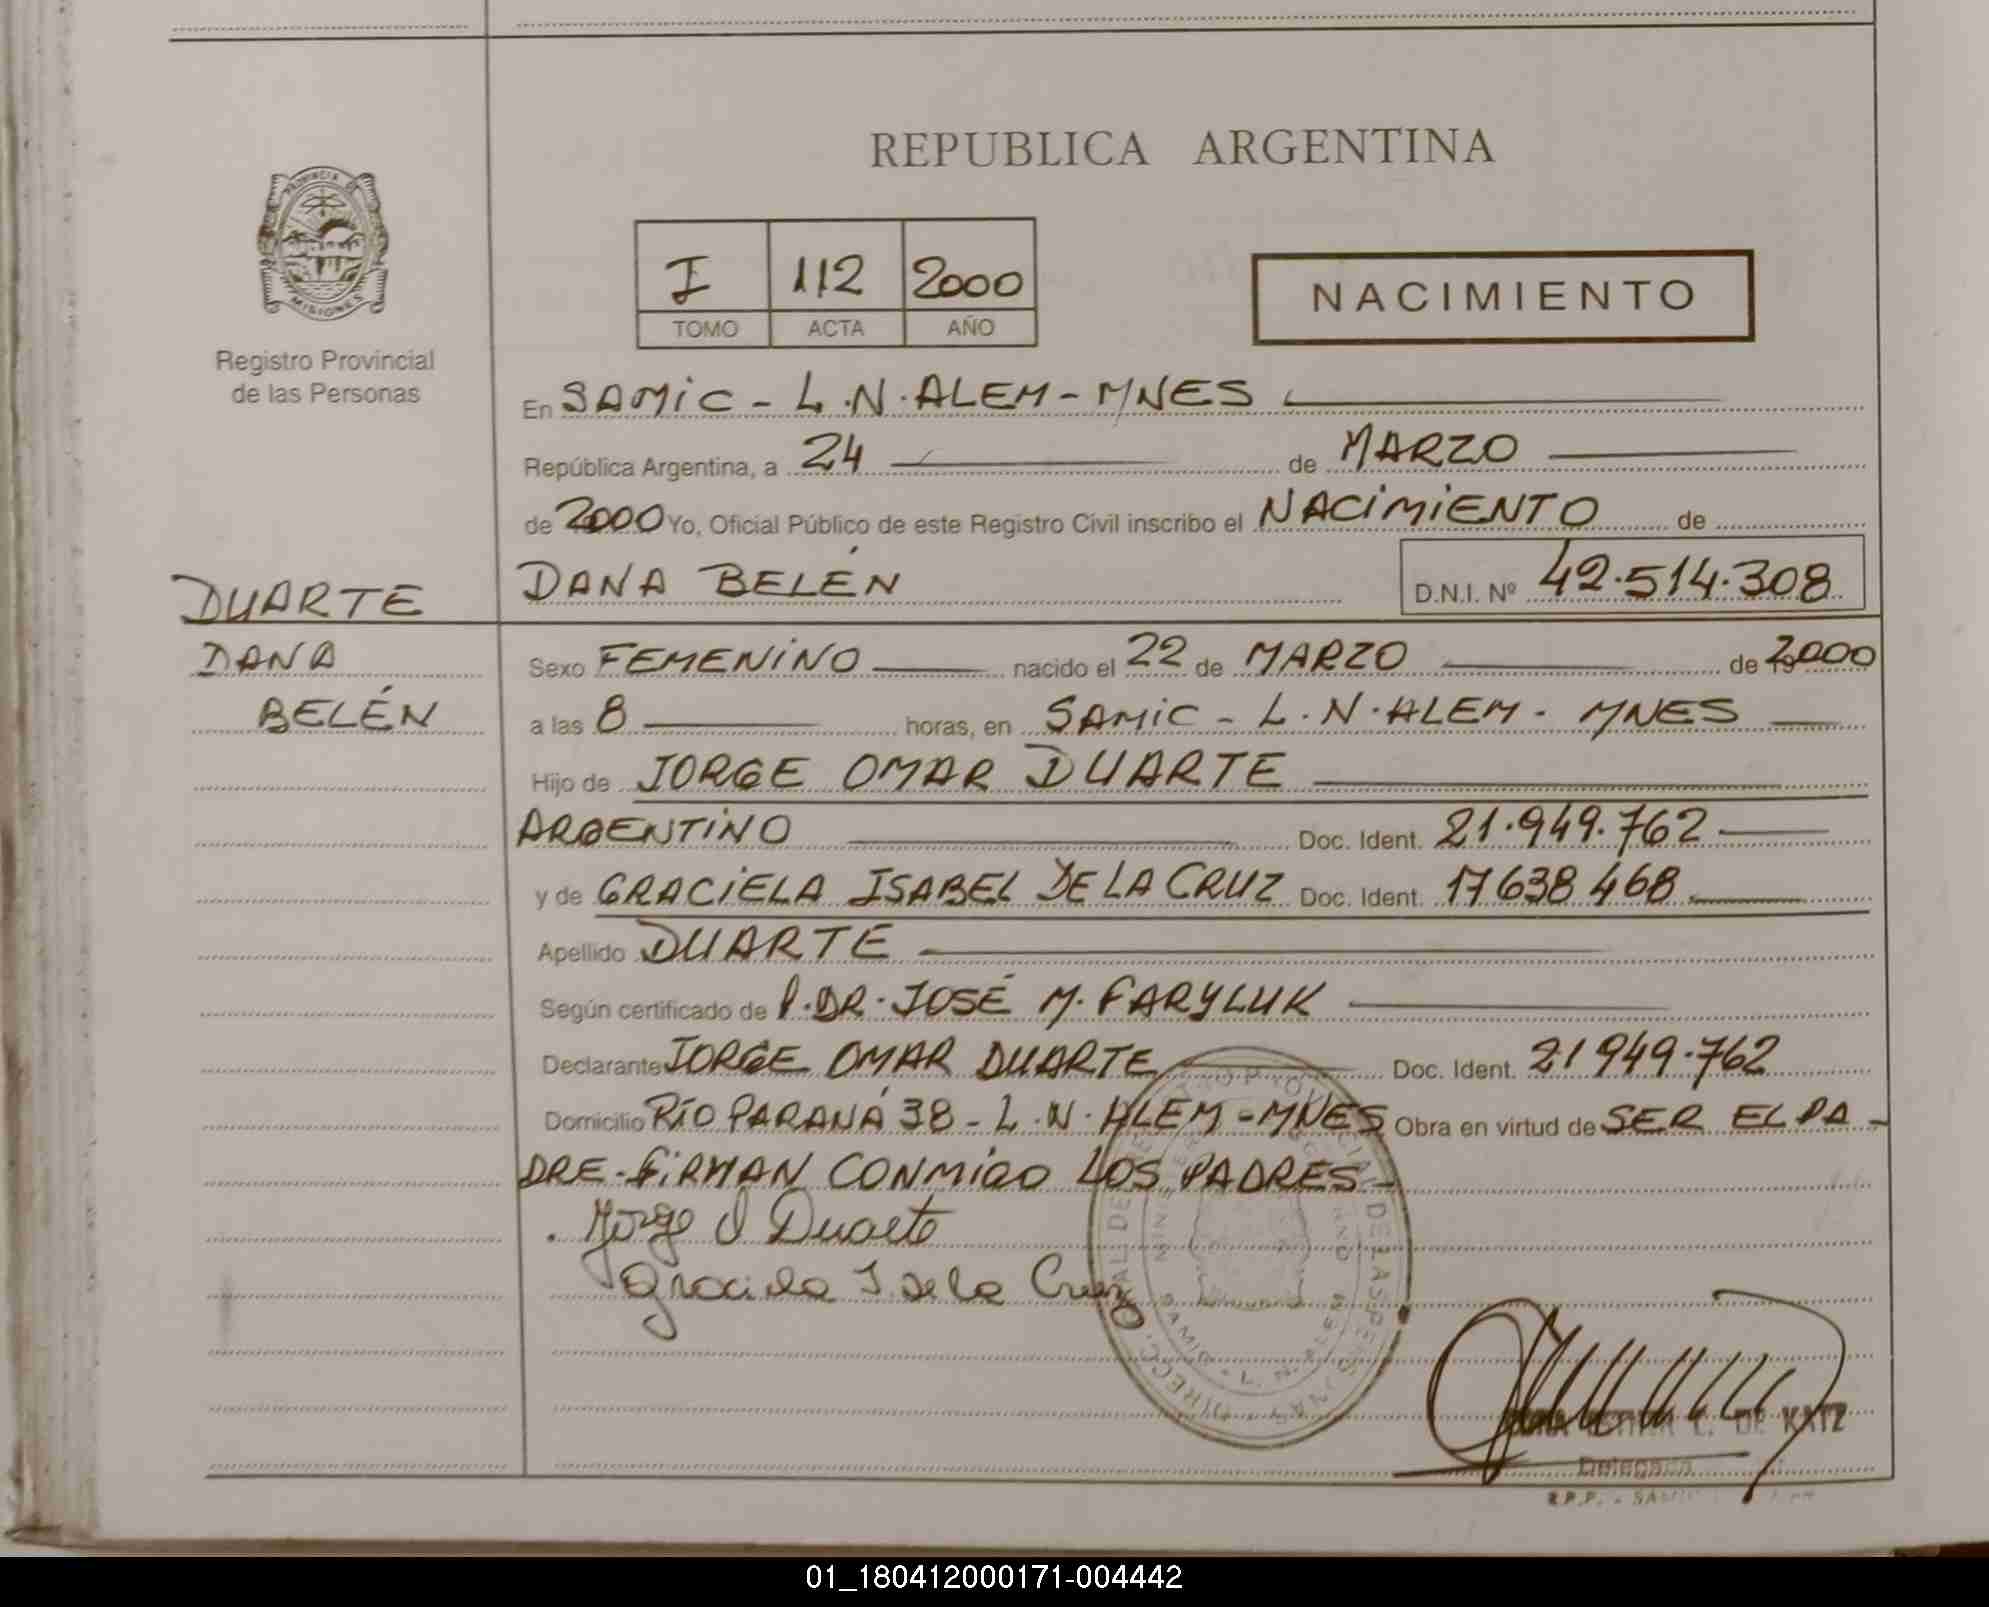 REPUBLICA ARGENTINA
PROVINCIA DE MISIONES
Registro Provincial
de las Personas
I 112 2000
TOMO ACTA AÑO
NACIMIENTO
En SAMIC - L.N.ALEM - MNES
República Argentina, a 24 de MARZO
de 2000 Yo, Oficial Público de este Registro Civil inscribo el NACIMIENTO de
DANA BELÉN D.N.I. Nº 42.514.308
DUARTE
DANA
BELÉN
Sexo FEMENINO nacido el 22 de MARZO de 2000
a las 8 horas, en SAMIC - L.N.ALEM - MNES
Hijo de JORGE OMAR DUARTE
ARGENTINO Doc. Ident. 21.949.762
y de GRACIELA ISABEL DE LA CRUZ Doc. Ident. 17638468
Apellido DUARTE
Según certificado de P.DR. JOSÉ M. FARYLUK
Declarante JORGE OMAR DUARTE Doc. Ident. 21949.762
Domicilio RÍO PARANÁ 38 - L.N.ALEM - MNES Obra en virtud de SER EL PA-
DRE - FIRMAN CONMIGO LOS PADRES -
Jorge O Duarte
Graciela I de la Cruz
DE KATZ
Delegada
R.P.P. - SAMIC
01_180412000171-004442